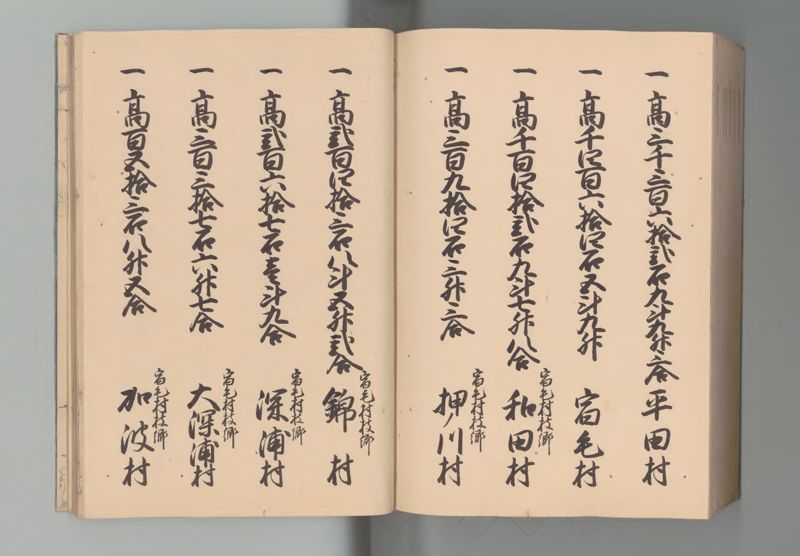 一高三千三百六拾弐石九斗九升三合 平田村
一高千四百六拾四石五斗九升 宿毛村
宿毛村枝郷
一高千百四拾弐石九斗七升八合 和田村
宿毛村枝郷
一高三百九拾四石三升三合 押ノ川村
宿毛村枝郷
一高弐百四拾三石八斗五升弐合 錦村
宿毛村枝郷
一高弐百六拾七石壱斗九合 深浦村
宿毛村枝郷
一高三百三拾七石六升七合 大深浦村
宿毛村枝郷
一高百五拾三石八升五合 加波村